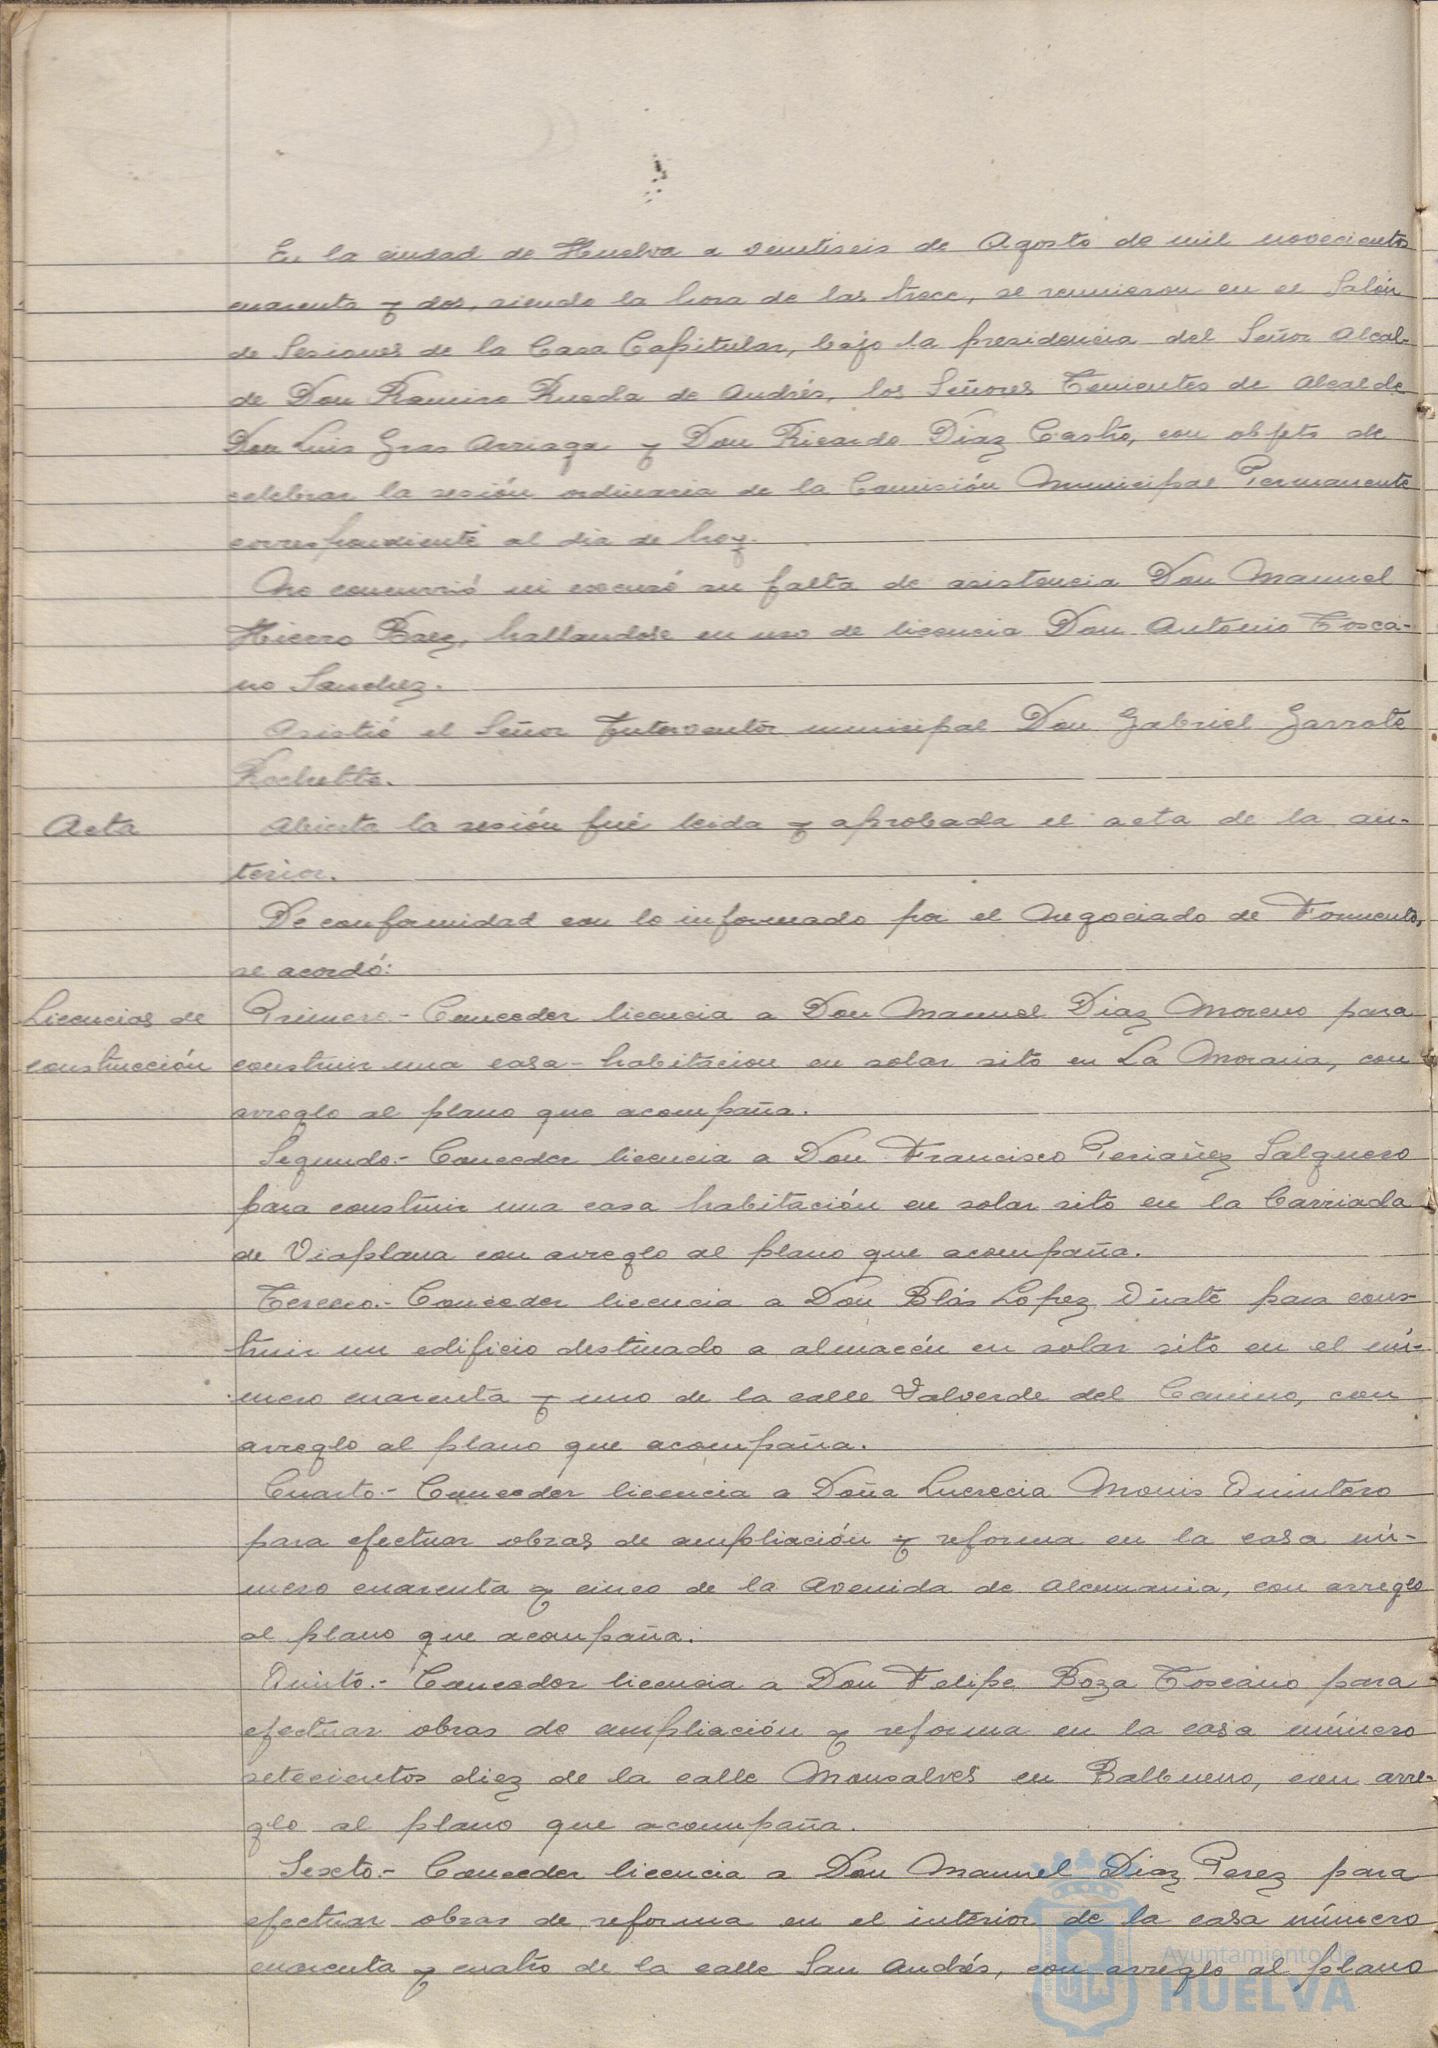 En la ciudad de Huelva a veintiseis de Agosto de mil novecientos
cuarenta y dos, siendo la hora de las trece, se reunieron en el Salón
de Sesiones de la Casa Capitular, bajo la presidencia del Señor Alcal-
de Don Ramiro Rueda de Andrés, los Señores Tenientes de Alcalde
Don Luis Gras Arriaga y Don Ricardo Diaz Castro, con objeto de
celebrar la sesión ordinaria de la Comisión Municipal Permanente
correspondiente al dia de hoy.
No concurrió ni excusó su falta de asistencia Don Manuel
Hierro Baez, hallandose en uso de licencia Don Antonio Tosca-
no Sanchez.
Asistió el Señor Interventor municipal Don Gabriel Garrote
Rochette.
Acta
Abierta la sesión fué leida y aprobada el acta de la an-
terior.
De conformidad con lo informado por el Negociado de Fomento,
se acordó:
Licencias de
construcción
Primero.- Conceder licencia a Don Manuel Diaz Moreno para
construir una casa-habitacion en solar sito en La Morana, con
arreglo al plano que acompaña.
Segundo.- Conceder licencia a Don Francisco Periañez Salguero
para construir una casa habitación en solar sito en la Barriada
de Viaplana con arreglo al plano que acompaña.
Tercero.- Conceder licencia a Don Blás Lopez Oñate para cons-
truir un edificio destinado a almacén en solar sito en el nú-
mero cuarenta y uno de la calle Valverde del Camino, con
arreglo al plano que acompaña.
Cuarto.- Conceder licencia a Doña Lucrecia Monis Quintero
para efectuar obras de ampliación y reforma en la casa nú-
mero cuarenta y cinco de la Avenida de Alemania, con arreglo
al plano que acompaña.
Quinto.- Conceder licencia a Don Felipe Boza Toscano para
efectuar obras de ampliación y reforma en la casa número
setecientos diez de la calle Monsalves en Balbueno, con arre-
glo al plano que acompaña.
Sexto.- Conceder licencia a Don Manuel Diaz Perez para
efectuar obras de reforma en el interior de la casa número
cuarenta y cuatro de la calle San Andrés, con arreglo al plano
Ayuntamiento de
HUELVA